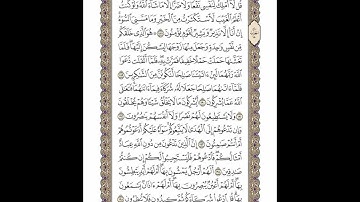 قُل لَّآ أَمْلِكُ لِنَفْسِى نَفْعًا وَلَا ضَرًّا إِلَّا مَا شَآءَ ٱللَّهُ وَلَوْ كُنتُ
أَعْلَمُ ٱلْغَيْبَ لَٱسْتَكْثَرْتُ مِنَ ٱلْخَيْرِ وَمَا مَسَّنِىَ ٱلسُّوٓءُ
إِنْ أَنَا۠ إِلَّا نَذِيرٌ وَبَشِيرٌ لِّقَوْمٍ يُؤْمِنُونَ ۝ هُوَ ٱلَّذِى خَلَقَكُم
مِّن نَّفْسٍ وَٰحِدَةٍ وَجَعَلَ مِنْهَا زَوْجَهَا لِيَسْكُنَ إِلَيْهَا فَلَمَّا
تَغَشَّىٰهَا حَمَلَتْ حَمْلًا خَفِيفًا فَمَرَّتْ بِهِۦ فَلَمَّآ أَثْقَلَت دَّعَوَا
ٱللَّهَ رَبَّهُمَا لَئِنْ ءَاتَيْتَنَا صَٰلِحًا لَّنَكُونَنَّ مِنَ ٱلشَّٰكِرِينَ ۝
فَلَمَّآ ءَاتَىٰهُمَا صَٰلِحًا جَعَلَا لَهُۥ شُرَكَآءَ فِيمَآ ءَاتَىٰهُمَا فَتَعَٰلَى
ٱللَّهُ عَمَّا يُشْرِكُونَ ۝ أَيُشْرِكُونَ مَا لَا يَخْلُقُ شَيْـًٔا وَهُمْ يُخْلَقُونَ
۝ وَلَا يَسْتَطِيعُونَ لَهُمْ نَصْرًا وَلَآ أَنفُسَهُمْ يَنصُرُونَ ۝
وَإِن تَدْعُوهُمْ إِلَى ٱلْهُدَىٰ لَا يَتَّبِعُوكُمْ سَوَآءٌ عَلَيْكُمْ أَدَعَوْتُمُوهُمْ
أَمْ أَنتُمْ صَٰمِتُونَ ۝ إِنَّ ٱلَّذِينَ تَدْعُونَ مِن دُونِ ٱللَّهِ عِبَادٌ
أَمْثَالُكُمْ فَٱدْعُوهُمْ فَلْيَسْتَجِيبُوا۟ لَكُمْ إِن كُنتُمْ
صَٰدِقِينَ ۝ أَلَهُمْ أَرْجُلٌ يَمْشُونَ بِهَآ أَمْ لَهُمْ أَيْدٍ يَبْطِشُونَ
بِهَآ أَمْ لَهُمْ أَعْيُنٌ يُبْصِرُونَ بِهَآ أَمْ لَهُمْ ءَاذَانٌ يَسْمَعُونَ
بِهَا قُلِ ٱدْعُوا۟ شُرَكَآءَكُمْ ثُمَّ كِيدُونِ فَلَا تُنظِرُونِ ۝